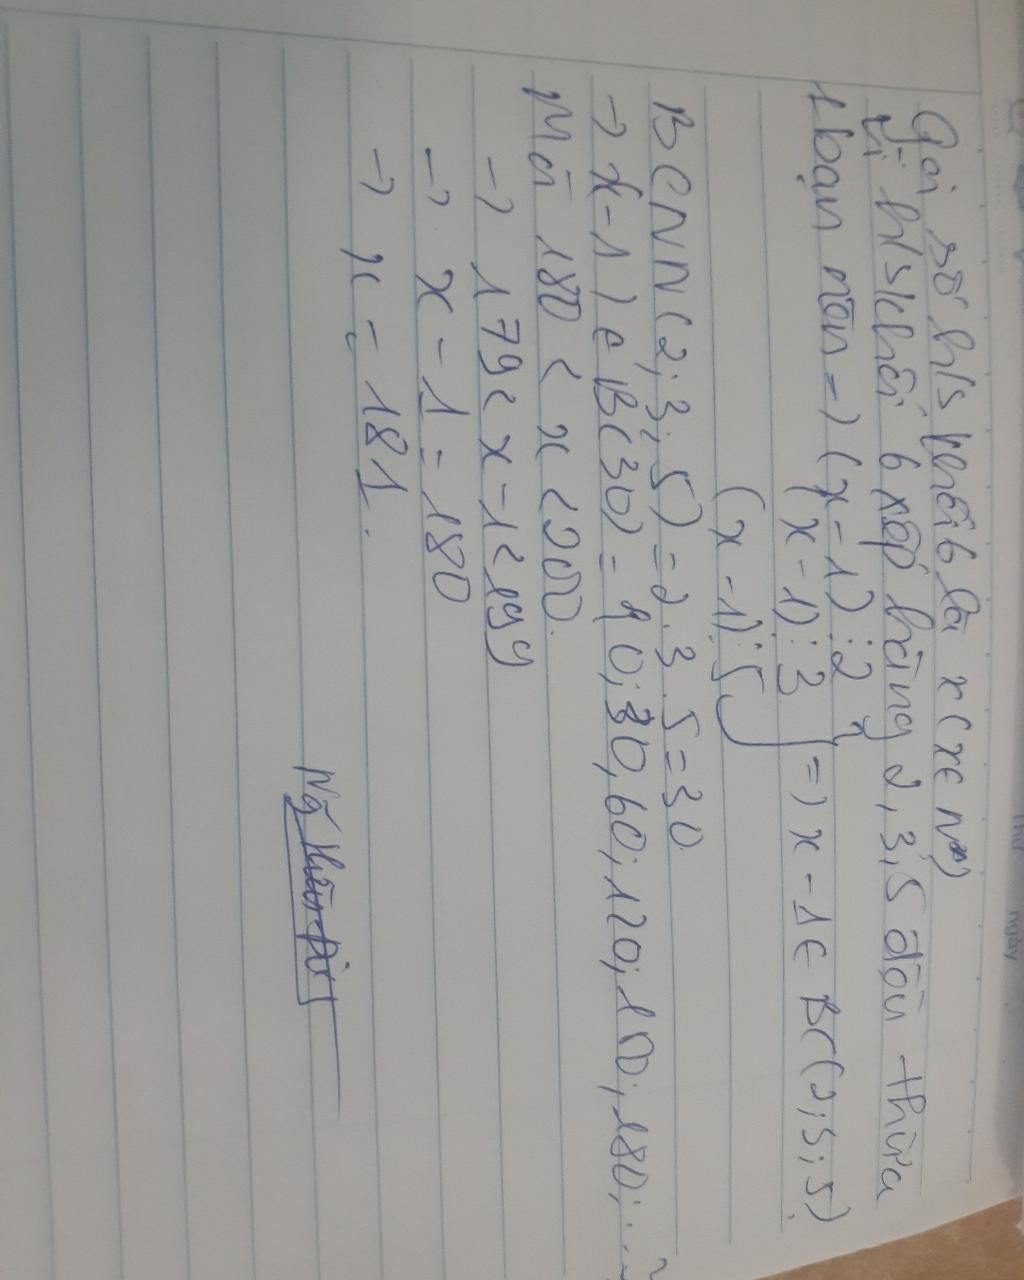 Gọi số h/s khối 6 là x (x ∈ N*)
Vì h/s khối 6 xếp hàng 2, 3, 5 đều thừa
1 bạn nên => (x - 1) ⋮ 2
(x - 1) ⋮ 3 } => x - 1 ∈ BC(2; 3; 5)
(x - 1) ⋮ 5
BCNN(2; 3; 5) = 2.3.5 = 30
-> x - 1 ∈ B(30) = { 0; 30, 60; 120; 150; 180; ...}
Mà 180 < x < 200.
-> 179 < x - 1 < 199
-> x - 1 = 180
-> x = 181.
thứ
ngày